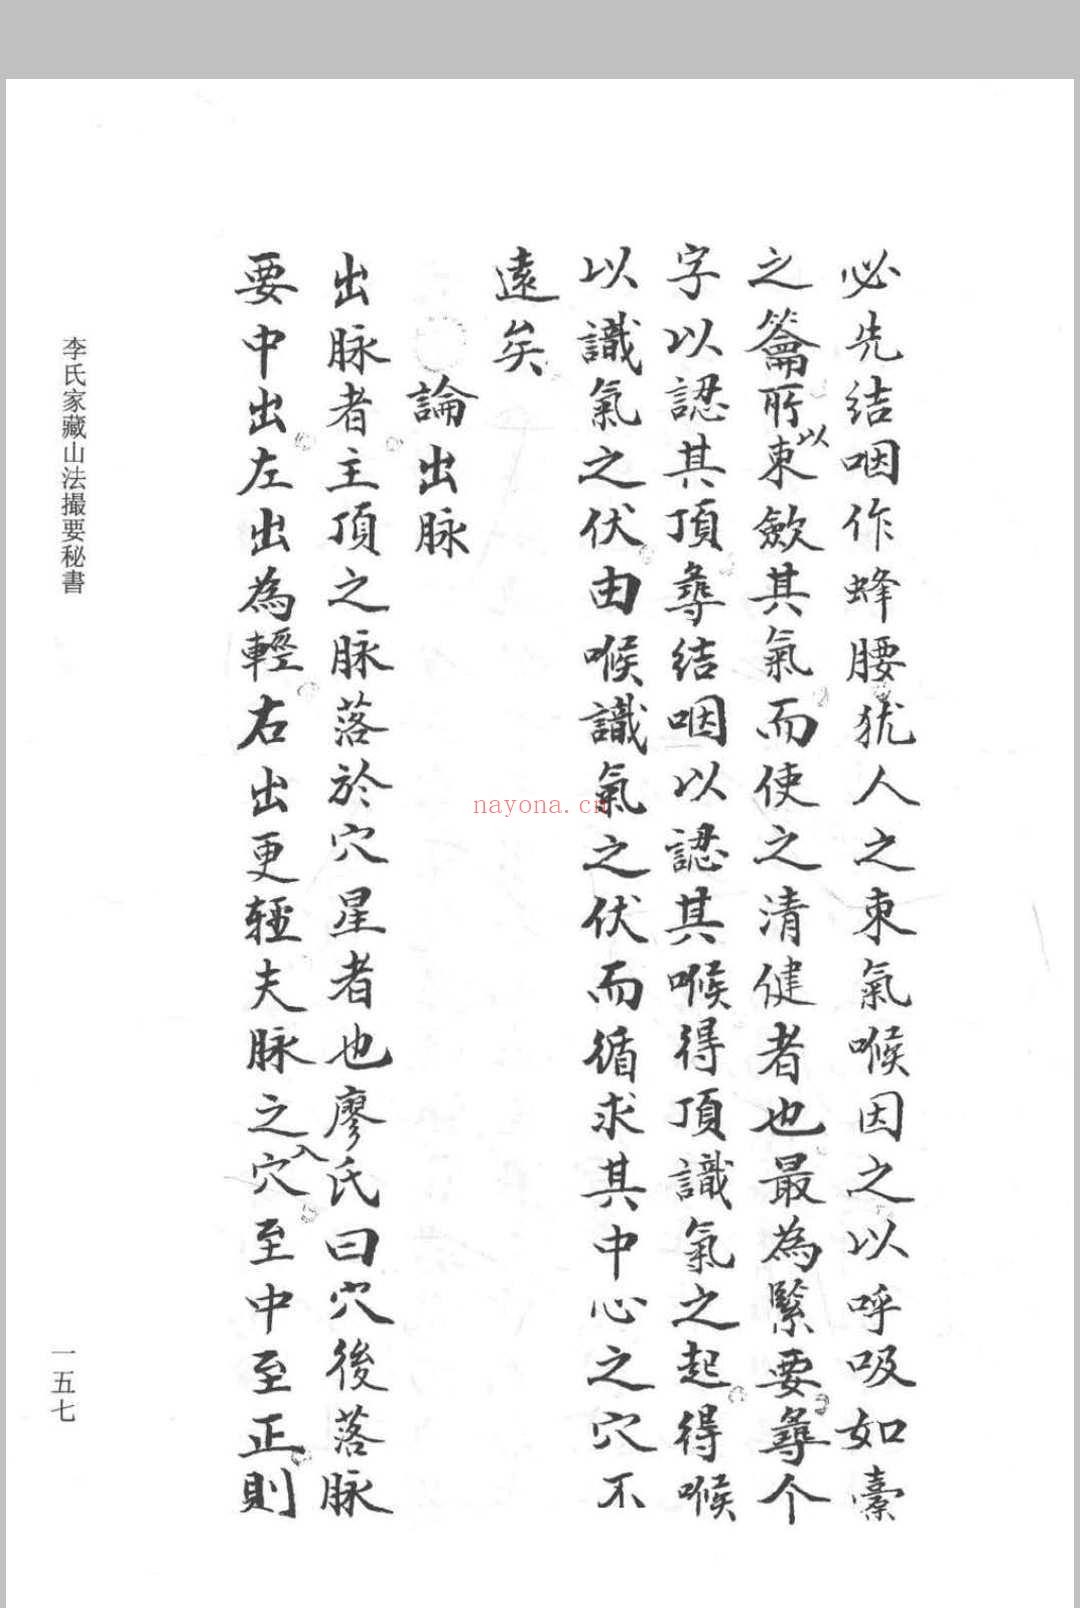 必先结咽作蜂腰犹人之束氣喉因之以呼吸如橐
之籥所以束歛其氣而使之清健者也最為緊要尋个
字以認其頂尋结咽以認其喉得頂識氣之起得喉
以識氣之伏由喉識氣之伏而循求其中心之穴不
遠矣
論出脉
出脉者主頂之脉落於穴星者也廖氏曰穴後落脉
要中出左出為輕右出更輕夫脉之入穴至中至正則
李氏家藏山法撮要秘書
一五七
nayona.cn